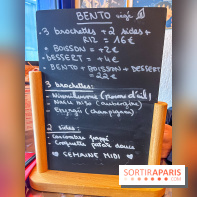 BENTO végé
. 3 brochettes + 2 sides +
RIZ = 16€
+ BOISSON = +2€
. DESSERT = +4€
. BENTO + BOISSON + DESSERT
= 22€
3 brochettes:
. Nasu miso (aubergine)
. Eryngii (champignon)
2 sides:
. Concombre
. Croquette patate douce
♡ SEMAINE MIDI ♡
SORTIRAPARIS
.COM